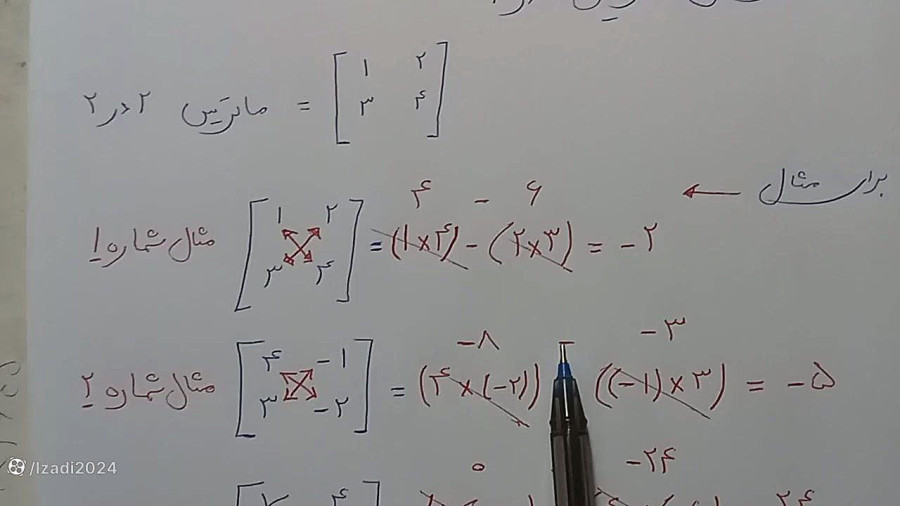 ماتریس ۲ در ۲ = [ ۱ ۲ ۳ ۴ ]
برای مثال ←
۴ - ۶
مثال شماره ۱ [ ۱ ۲ ۳ ۴ ] = (۱×۴) - (۲×۳) = -۲
-۸ - -۳
مثال شماره ۲ [ ۴ -۱ ۳ -۲ ] = (۴×(-۲)) ((-۱)×۳) = -۵
۰ -۲۴
/Izadi2024